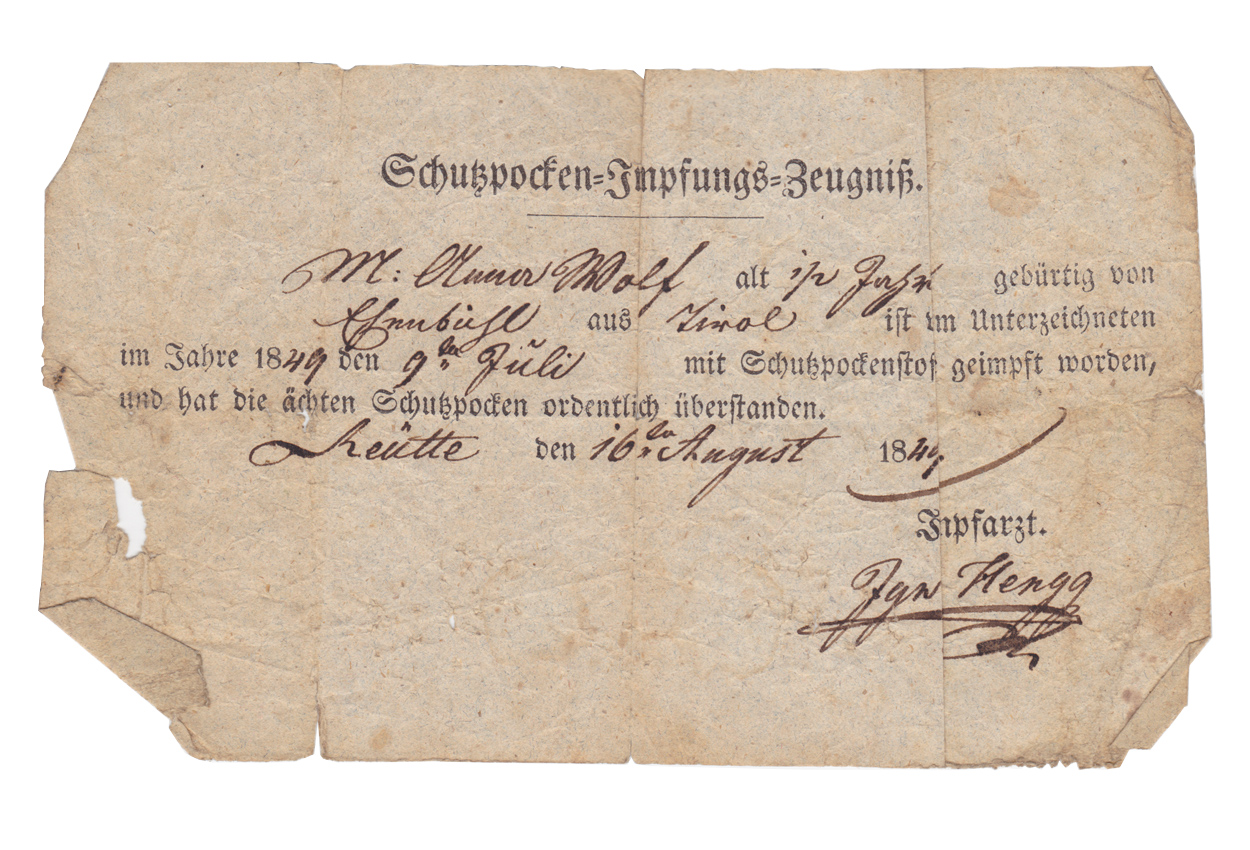 Schutzpocken-Impfungs-Zeugniß.
M: Anna Wolf alt 1/2 Jahr gebürtig von
Ehenbichl aus Tirol ist im Unterzeichneten
im Jahre 1849 den 9ten Juli mit Schutzpockenstof geimpft worden,
und hat die ächten Schutzpocken ordentlich überstanden.
Reütte den 16ten August 1849
Impfarzt.
Ign Hengg